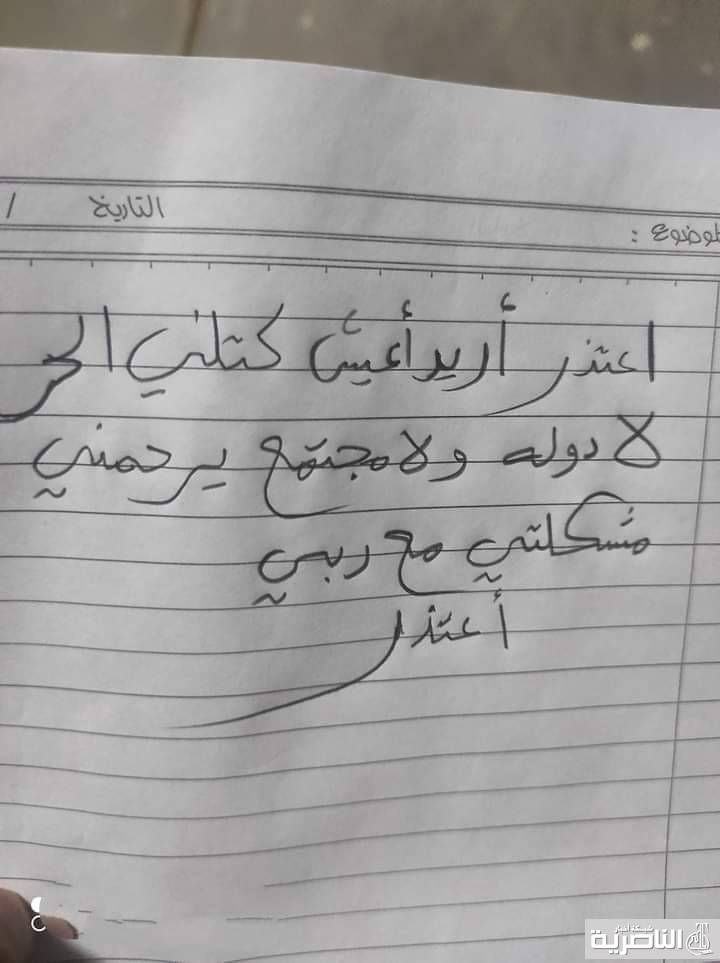 الموضوع :
التاريخ /
اعتذر أريد أعيش كتلني الحر
لا دوله ولا مجتمع يرحمني
مشكلتي مع ربي
أعتذر
شبكة أخبار
الناصرية